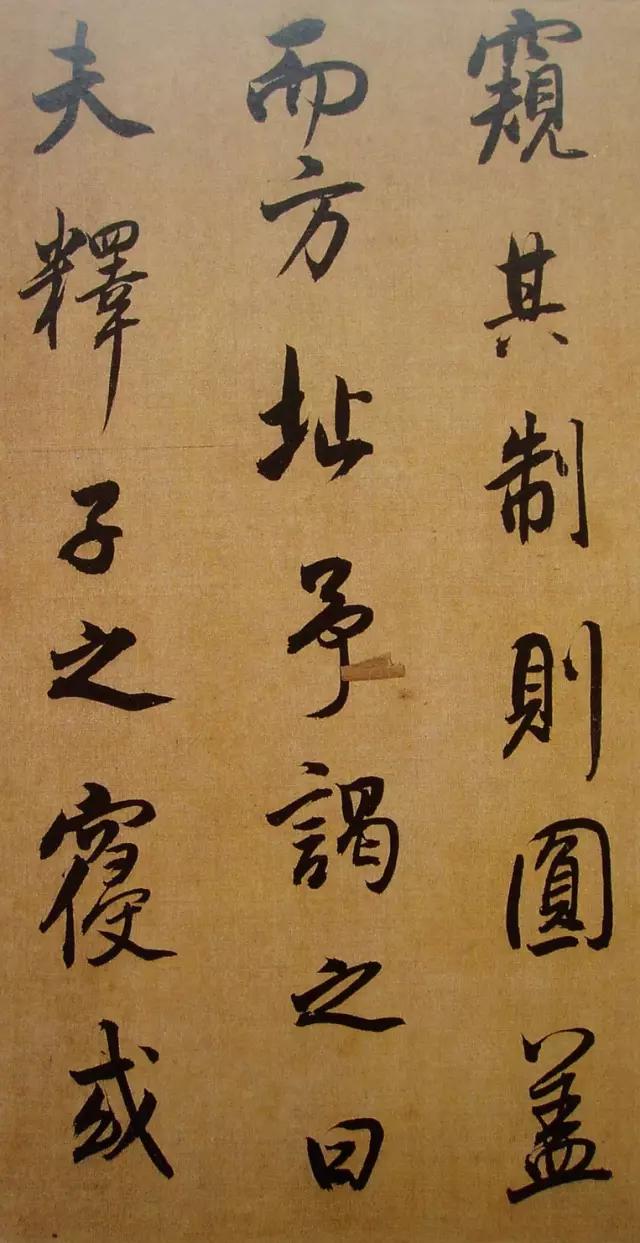 窺其制則圓盖
而方址予謁之曰
夫釋子之寢或